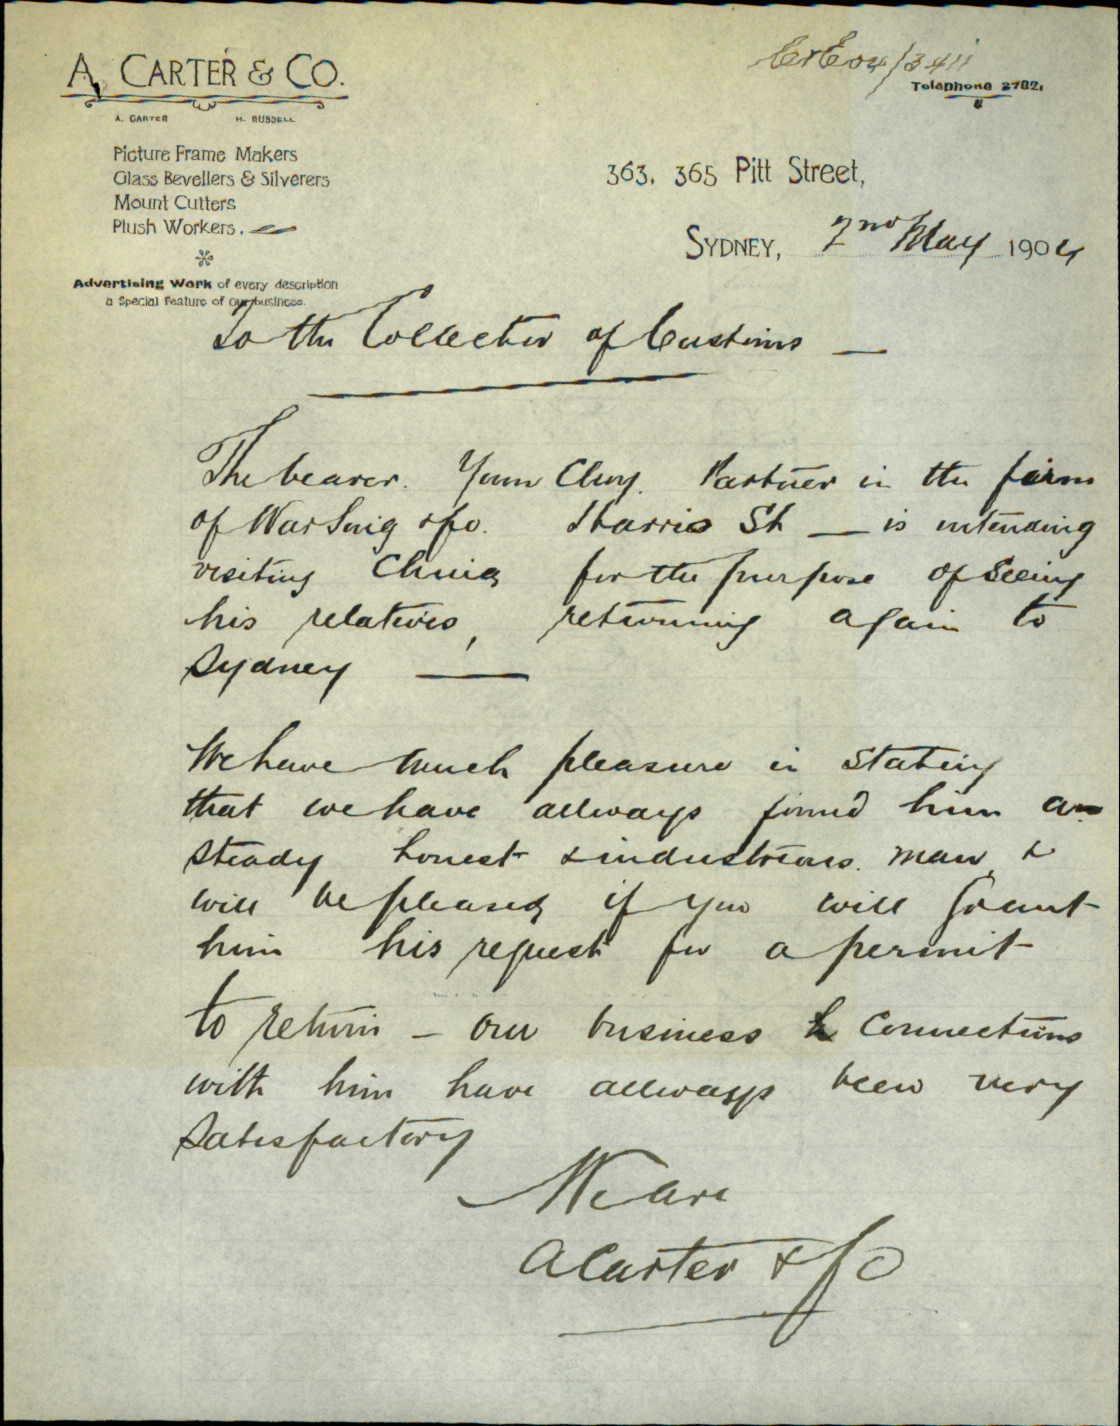 A. CARTER & CO.
A. CARTER H. RUSSELL
Picture Frame Makers
Glass Bevellers & Silverers
Mount Cutters
Plush Workers.
Advertising Work of every description
a Special Feature of our business.
Telephone 2782.
363, 365 Pitt Street,
SYDNEY, 2nd May 1904
To the Collector of Customs —
The bearer. Partner in the firm
of War & Co. Harris St — is intending
visiting China for the purpose of Seeing
his relatives, returning again to
Sydney —
We have much pleasure in stating
that we have allways found him a
steady honest & industrious man &
will be pleased if you will Grant
him his request for a permit
to return - our business Connections
with him have allways been very
Satisfactory
We are
A Carter & Co